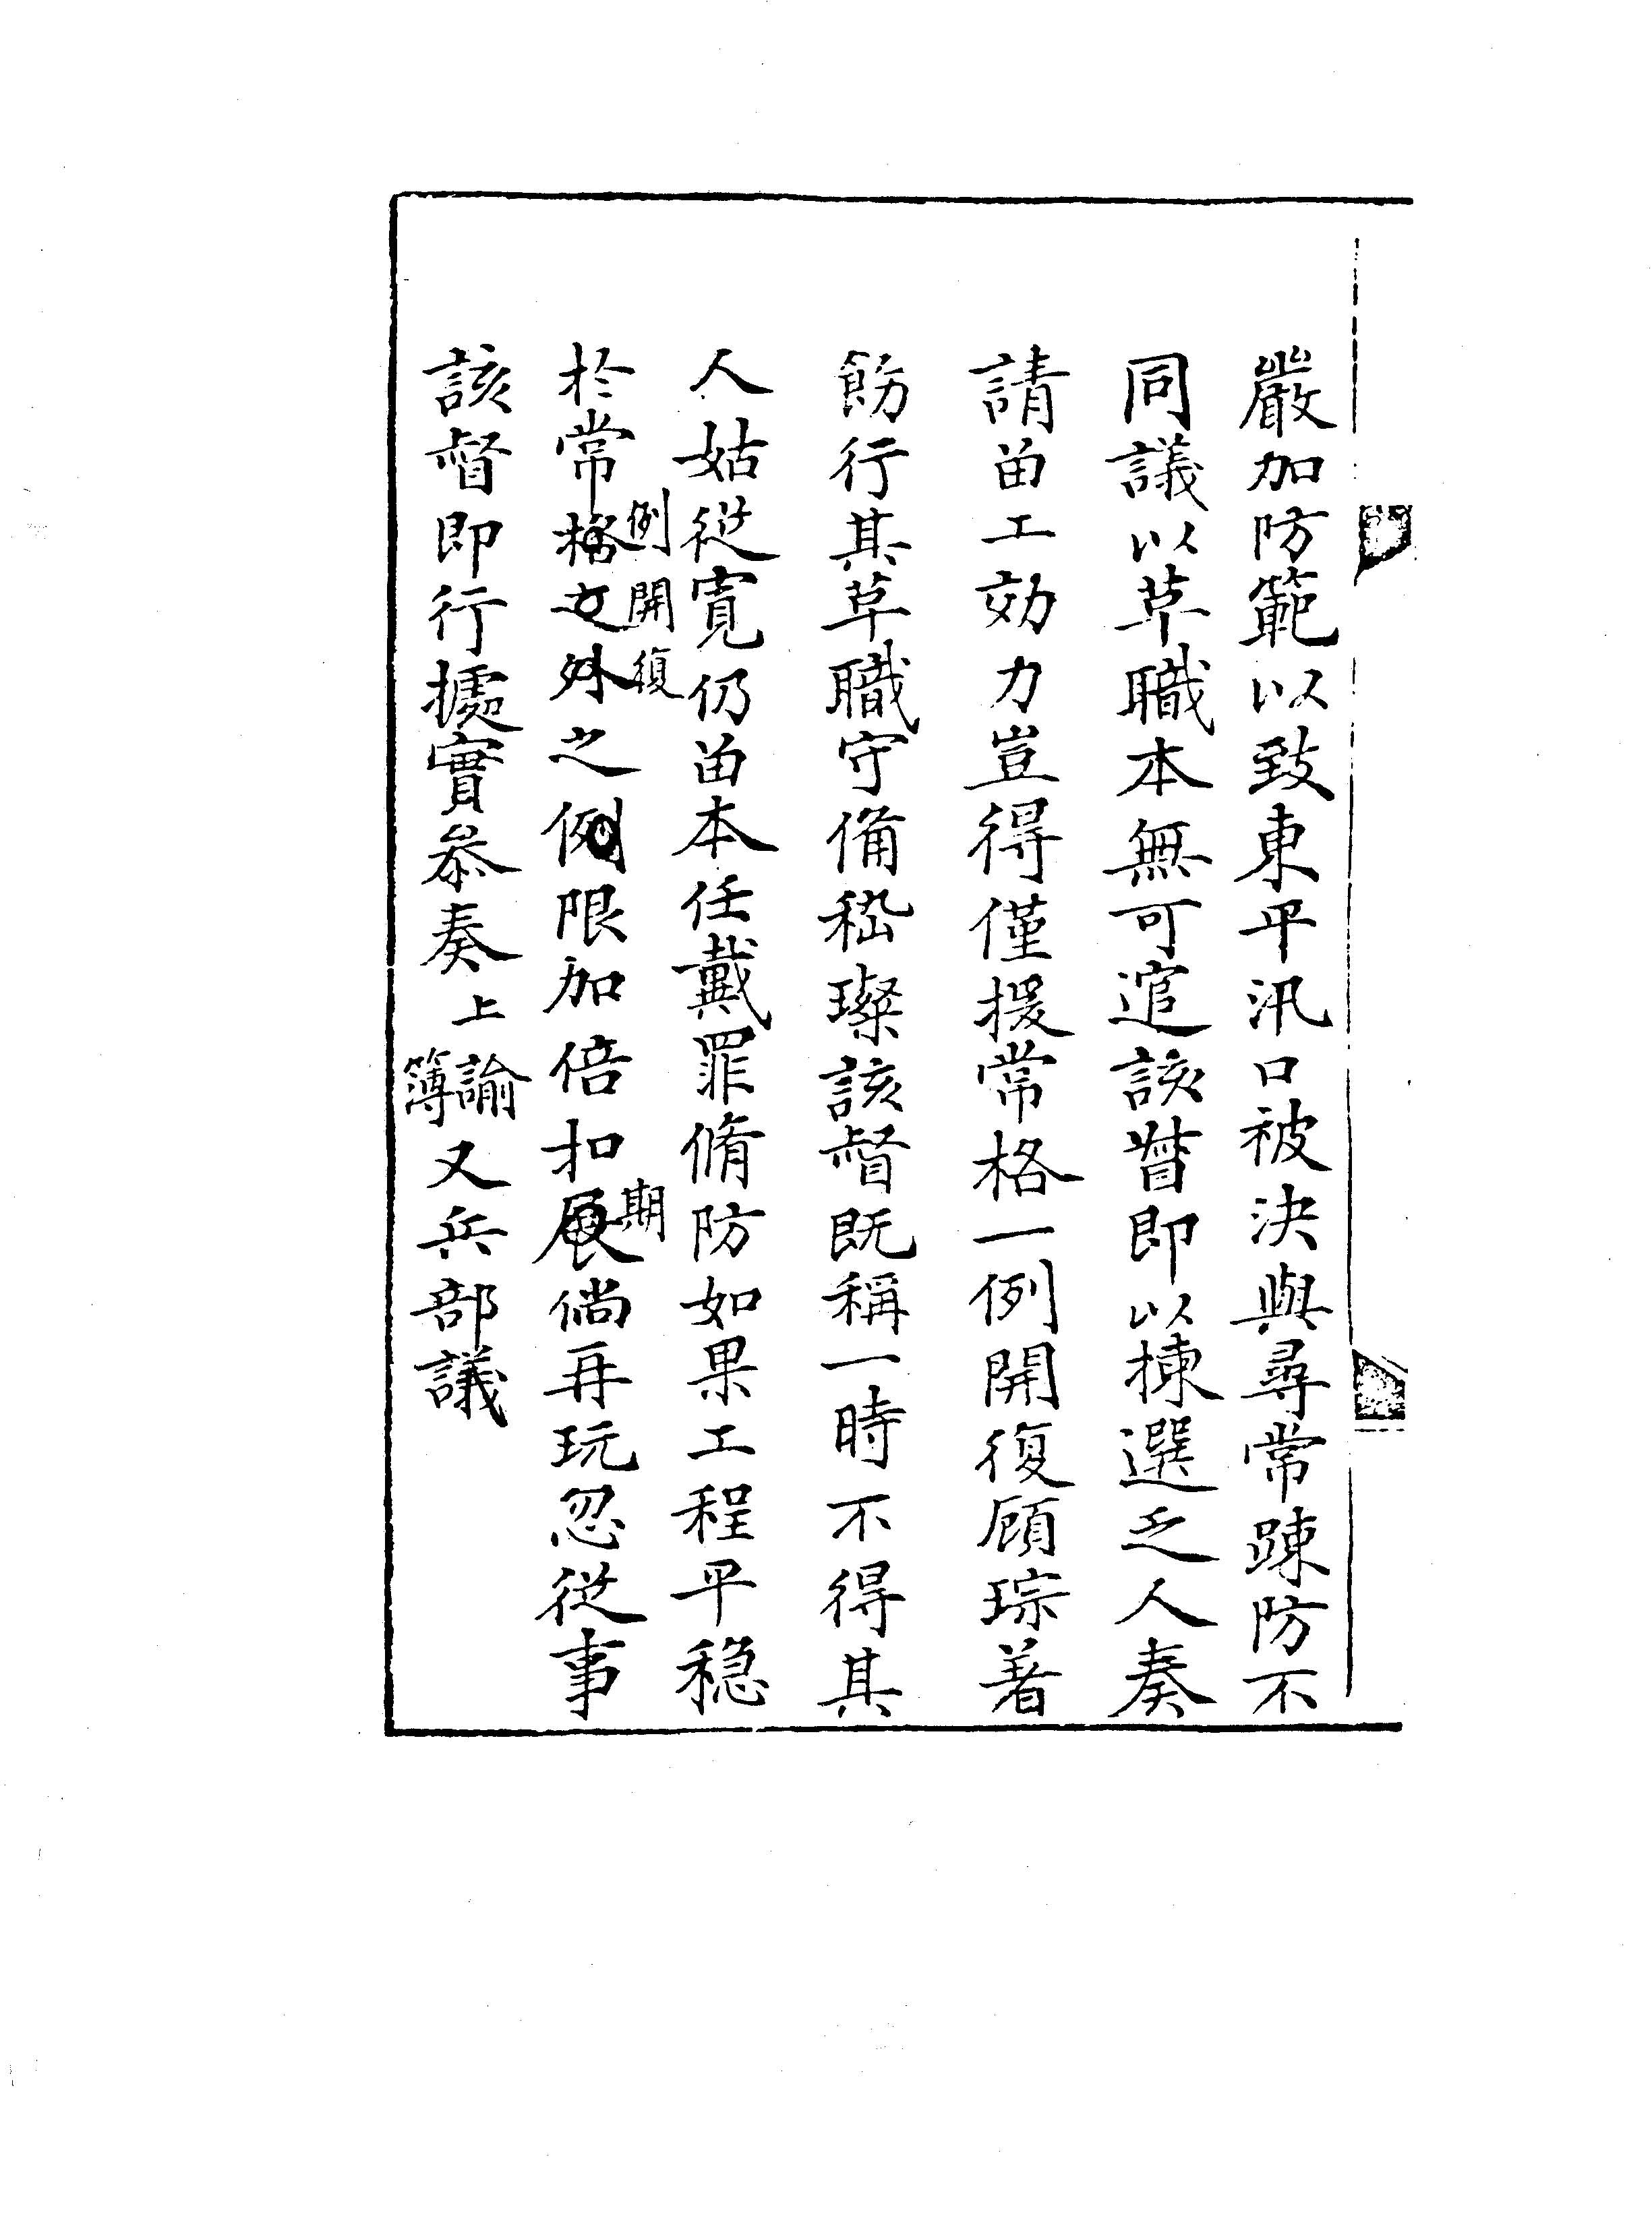 嚴加防範以致東平汛口被決與尋常踈防不
同議以革職本無可逭該督即以揀選乏人奏
請畱工効力豈得僅援常格一例開復顧琮著
飭行其革職守備嵇璨該督既稱一時不得其
人姑從寛仍畱本任戴罪脩防如果工程平穏
例開復期
於常格之外之例限加倍扣展倘再玩忽從事
該督即行據實叅奏上諭簿又兵部議